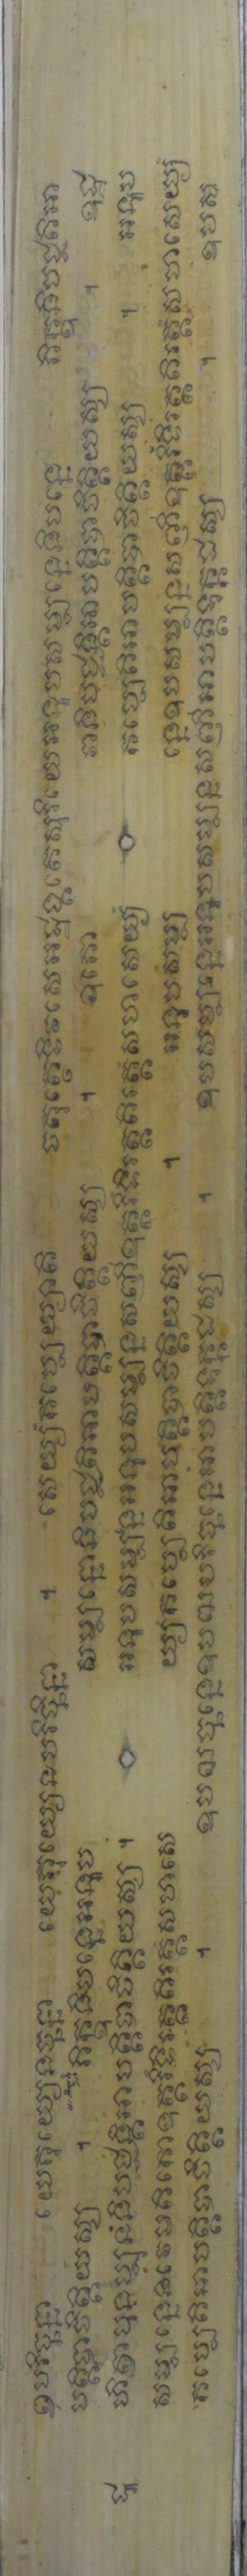 ឬបរិច្ឆន្នា យេភុយ្យេនច្ឆន្នា យេភុយ្យេនបរិច្ឆិន្នា ។ សេយ្យំកប្បេយ្យាតិ ចតុត្ថេទិវសេអដ្ឋង្គតេសុរិយេអនុបសម្បន្នេនិបន្នេ ភិក្ខុនិបជ្ជតិអា
បត្តិបាចិត្តិយស្ស ។ ភិក្ខុនិបន្នេអនុប សម្បន្នោនិបជ្ជតិអាបត្តិបាចិត្តិយស្ស ។ ឧភោ វានិបជ្ជន្តិអាបត្តិបាចិត្តិយស្ស ។ ឧដ្ឋ
ហិត្វាបុនប្បុនំនិបជ្ជន្តិអាបត្តិបាចិត្តិយស្ស ។ អនុបសម្បន្នេអនុបសម្បន្នសញ្ញីឧត្តរិទិរត្តតិរត្តំសហសេយ្យំ កប្បេតិអាបត្តិបាចិត្តិយស្ស ។ អនុប
សម្បន្នេវេមតិកោឧត្តរិទិរត្តតិរត្តំសហសេ យ្យកប្បេតិអាបត្តិបាចិត្តិយស្ស ។ អនុបសម្ប ន្នេឧបសម្បន្នសញ្ញីឧត្តរិទិរត្តតិរត្តំសហសេយ្យំ
កប្បេតិអាបត្តិបាចិត្តិយស្ស ។ ឧបឍច្ឆន្នេឧបឍបរិច្ឆន្នេអាបត្តិទុក្កដស្ស ។ ឧបសម្បន្នេអនុបសម្បន្នសញ្ញីអាបត្តិទុក្កដស្ស ។ ឧបស